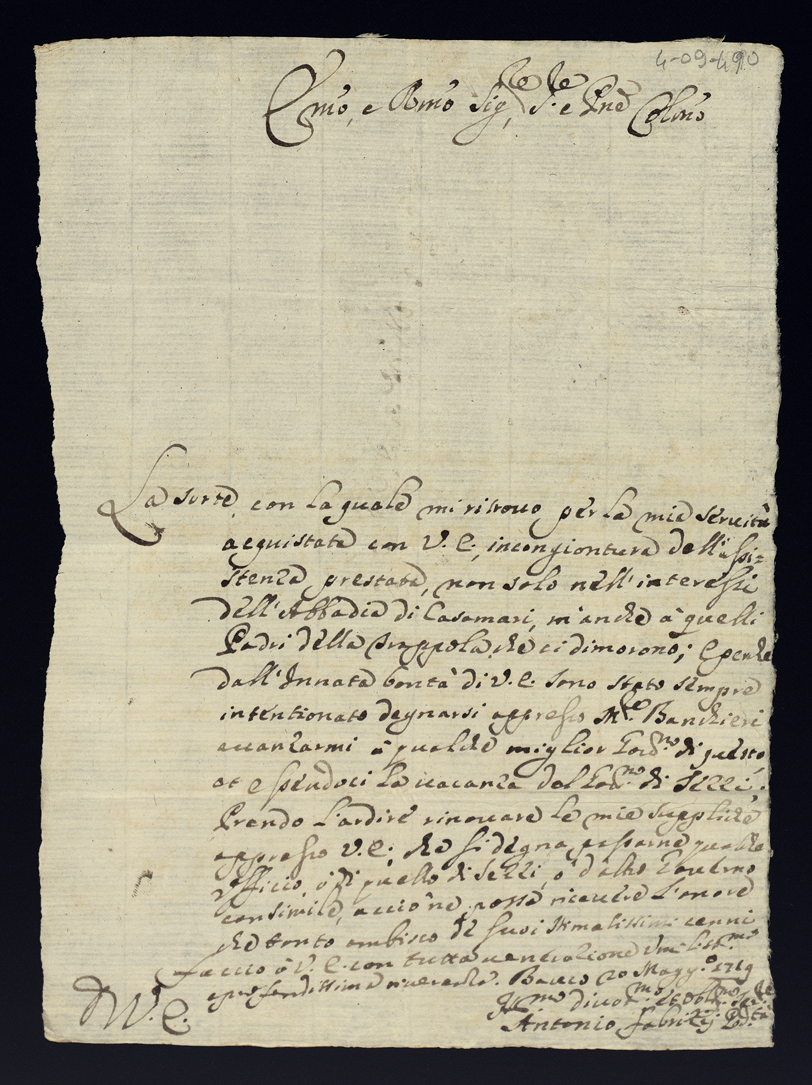 4-09-490
Em̃o, e Rmõ Sig.re S.re e Prne Colmõ
La sorte, con la quale mi ritrouo per la mia seruitù
acquistata con V. E., in congiontura dell'assi=
stenza prestata, non solo nell'interessi
dell'Abbadia di Casamari, m'anche à quelli
Padri della Trappola, che ci dimorono; e perche
dall'Innata bontà di V. E. sono stato sempre
intentionato degnarsi appresso M.re Banchieri
auanzarmi à qualche miglior Gou.no di questo,
at essendoci la uacanza del Gou.no di Sezzi.
Prendo l'ardire rinouare le mie suppliche
appresso V. E., che si degna passarne qualche
Vfficio, ò di quello di Sezzi, ò d'altro Gouerno
consimile, acciò ne possa riceuere l'onore
che tanto ambisco de suoi stimatissimi cenni
faccio à V. E. con tutta ueneratione
profondissima riuerenza. Bauco 20 Magg.o 1719
D V. E.
H.mo diuot.mo et obl.mo Ser.re
Antonio Fabrizij